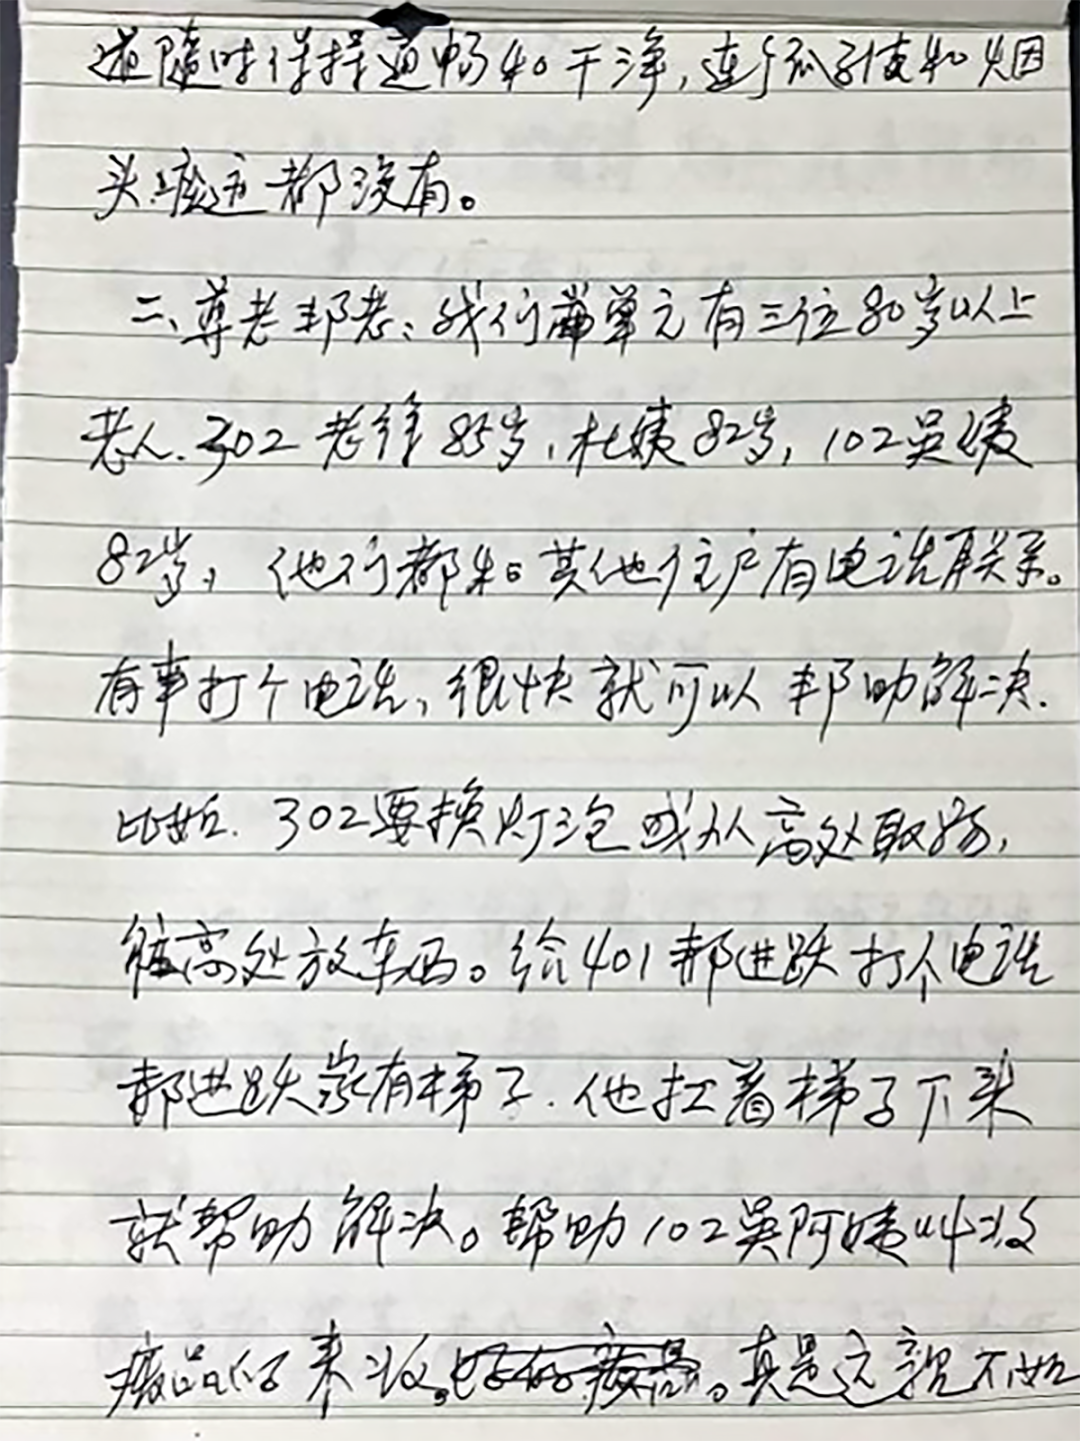 道随时保持通畅和干净，连个瓜子皮和烟
头痕迹都没有。
二、尊老帮老：我们单元有三位80岁以上
老人.302老徐85岁，杜姨82岁，102吴姨
82岁，他们都和其他住户有电话联系。
有事打个电话，很快就可以帮助解决.
比如.302要换灯泡或从高处取物，
往高处放东西。给401郝进跃打个电话
郝进跃家有梯子.他扛着梯子下来
就帮助解决。帮助102吴阿姨叫收
废品的来收。真是远亲不如